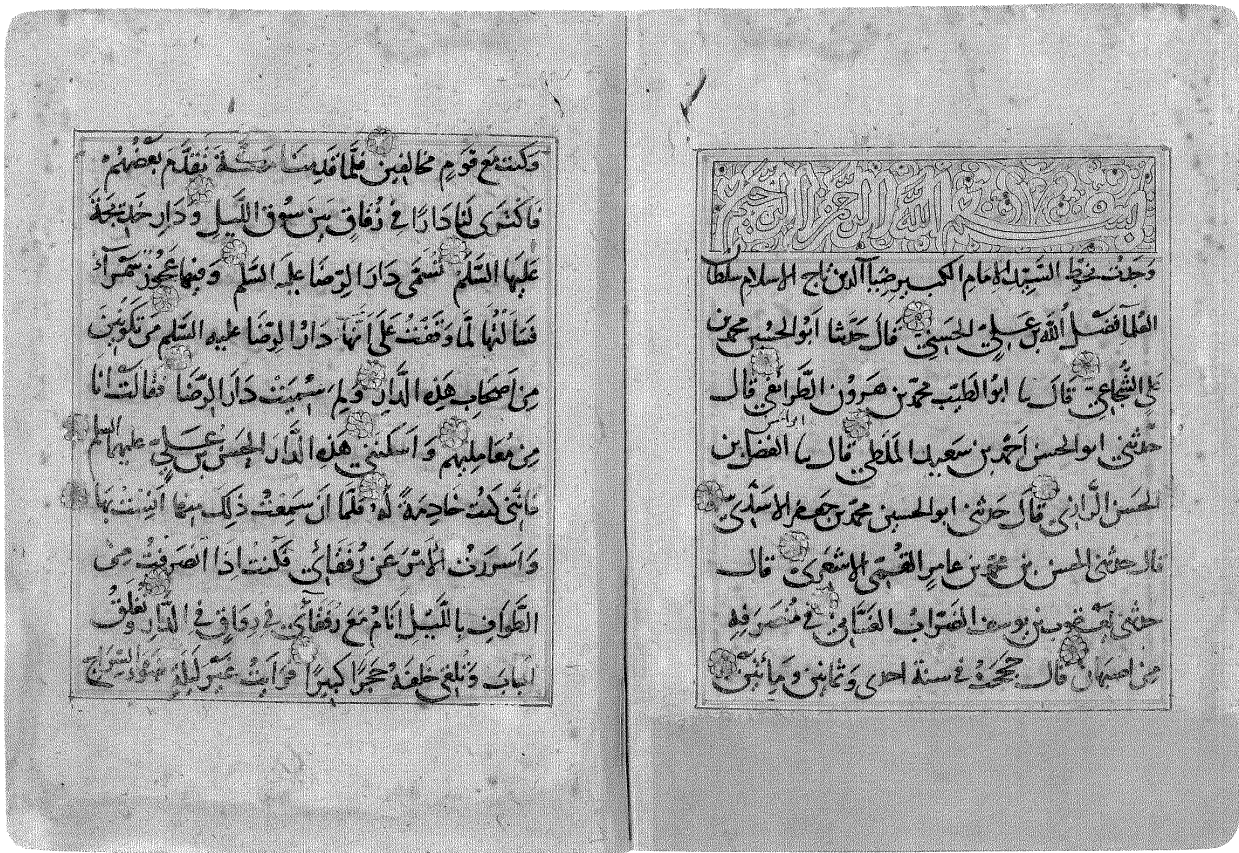 بسم الله الرحمن الرحيم
وجدت بخط السيد الامام الكبير ضيآ الدين تاج الاسلام سلطان
العلمآ فضل الله بن علي الحسني قال حدثنا ابو الحسين محمد بن
علي الشجاعي قال نا ابو الطيب محمد بن هرون الطرائفي قال
حدثني ابو الحسن احمد بن سعيد الملطي قال نا الفضل بن
الحسن الرازي قال حدثني ابو الحسين محمد بن جعفر الاسدي
قال حدثني الحسن بن محمد بن عامر القمي الاشعري قال
حدثني يعقوب بن يوسف الضراب الغساني في منصرفه
من اصبهان قال حججت في سنة احدى وثمانين ومائتين
وَكنت مَع قومٍ مخالفين فلمّا قدمنا مكّة تقدّم بعضهم
فاكترى لنا دارًا في زقاق بين سوق الليل ودار خديجة
عليها السّلم تسمى دار الرضا عليه السّلم وفيها عجوز سمرآء
فسالتها لمّا وقفت على انها دار الرضا عليه السّلم من تكونين
من اصحاب هذه الدار ولم سميت دار الرضا فقالت انا
من مواليهم واسكننى هذه الدار الحسن بن علي عليهما السلم
فانّنى كنت خادمة له فلمّا ان سمعت ذلك منها انست بها
واسررت الامر عن رفقائي فكنت اذا انصرفت من
الطواف بالليل انام مع رفقائي في رواق في الدار ونغلق
الباب ونلقي خلفه حجرًا كبيرًا فرايت غير ليلة ضوء السراج